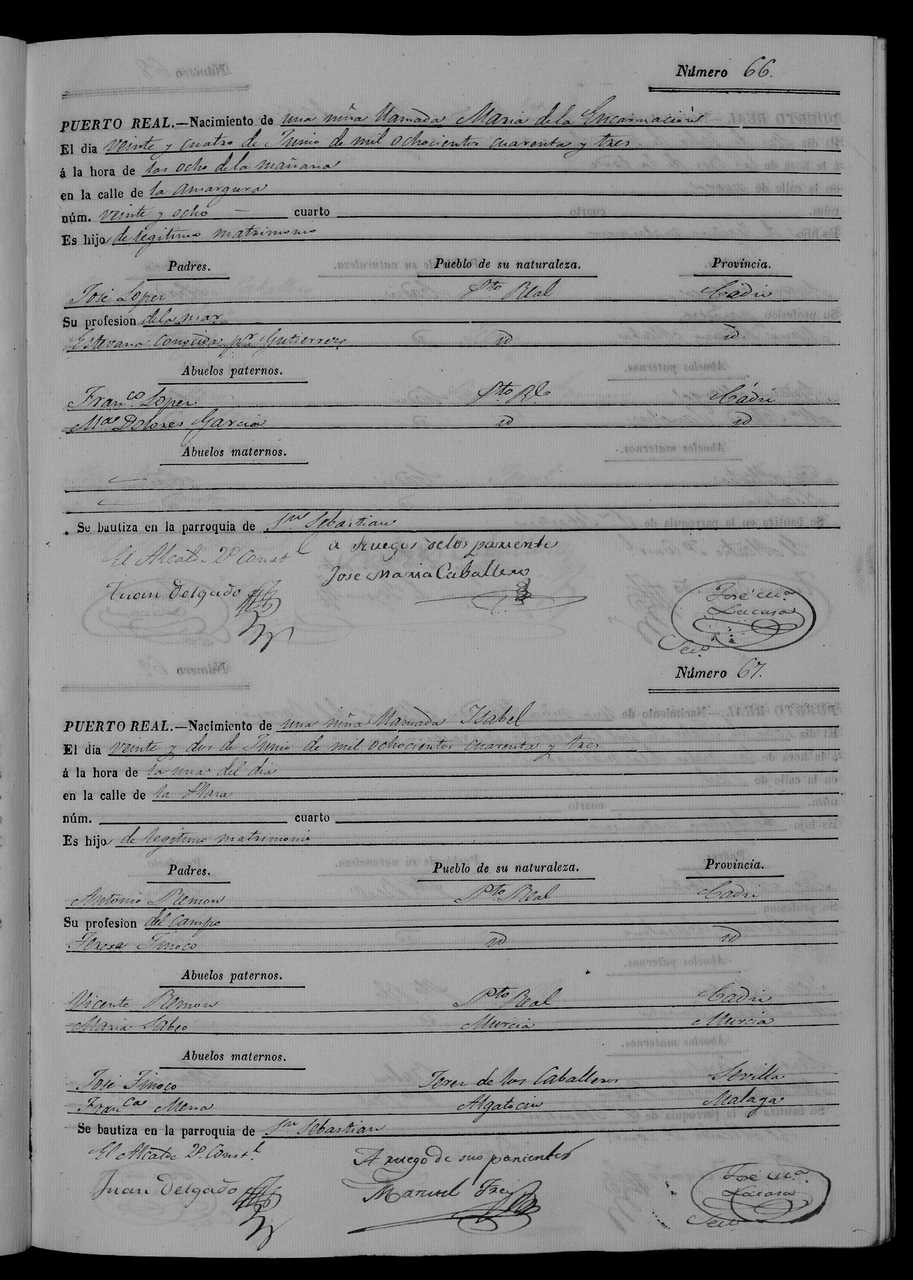 Número 66.
PUERTO REAL.—Nacimiento de una niña llamada Maria de la Encarnacion
El dia veinte y cuatro de Junio de mil ochocientos cuarenta y tres
á la hora de las ocho de la mañana
en la calle de la Amargura
núm. veinte y ocho — cuarto
Es hijo de legitimo matrimonio
Padres. Pueblo de su naturaleza. Provincia.
José Lopez Pto Real Cadiz
Su profesion de la mar
Estevana Gutierrez id id
Abuelos paternos.
Franco Lopez Pto Rl Cádiz
Ma Dolores Garcia id id
Abuelos maternos.
Se bautiza en la parroquia de Sn Sebastian
El Alcalde 2o Const a ruegos de los pariente
Juan Delgado Jose Maria Caballero José Ma
Lacasa
Seco
Número 67.
PUERTO REAL.—Nacimiento de una niña llamada Isabel
El dia veinte y dos de Junio de mil ochocientos cuarenta y tres
á la hora de la una del dia
en la calle de la Plaza
núm. cuarto
Es hijo de legitimo matrimonio
Padres. Pueblo de su naturaleza. Provincia.
Antonio Remon Pto Real Cadiz
Su profesion del campo
Teresa Tinoco id id
Abuelos paternos.
Vicente Remon Pto Real Cadiz
Maria Murcia Murcia
Abuelos maternos.
José Tinoco Jerez de los Caballeros Sevilla
Franca Mena Algatocin Malaga
Se bautiza en la parroquia de Sn Sebastian
El Alcalde 2o Constl A ruego de sus parientes
Juan Delgado Manuel Frey José Ma
Lacasa
Seco